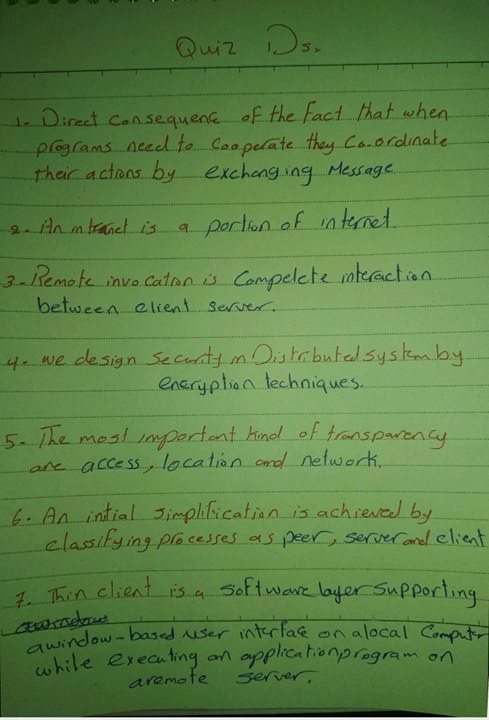 Quiz Ds.
1- Direct consequence of the fact that when
programs need to cooperate they co-ordinate
their actions by exchanging Message
2- An intranet is a portion of internet.
3- Remote invocation is Compelete interaction
between client server.
4- we design security in Distributed system by
encryption techniques.
5- The most important kind of transparency
are access, location and network.
6- An intial simplification is achieved by
classifying processes as peer, server and client
7- Thin client is a software layer supporting
awindow
awindow-based user interfae on alocal Computer
while executing an application program on
aremote server.